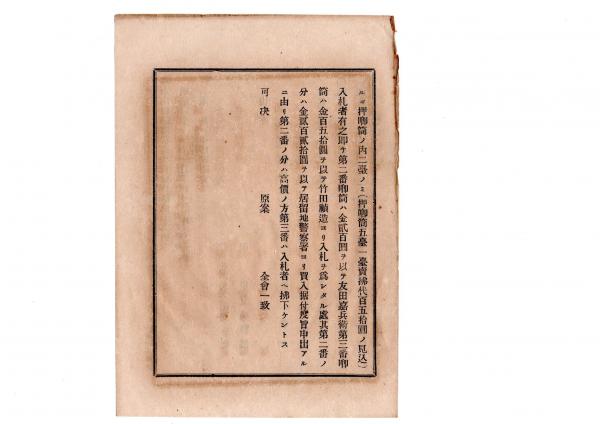 ルニ押喞筒ノ内二臺ノミ(押喞筒五臺一臺賣拂代百五拾圓ノ見込)
入札者有之即チ第二番喞筒ハ金貳百圓ヲ以テ友田嘉兵衛第三番喞
筒ハ金百五拾圓ヲ以テ竹田顧造ヨリ入札ヲ爲シタル處其第二番ノ
分ハ金貳百貳拾圓ヲ以テ居留地警察署ヨリ買入据付度旨申出アル
ニ由リ第二番ノ分ハ高價ノ方第三番ハ入札者ヘ拂下ケントス
可决 原案 全會一致